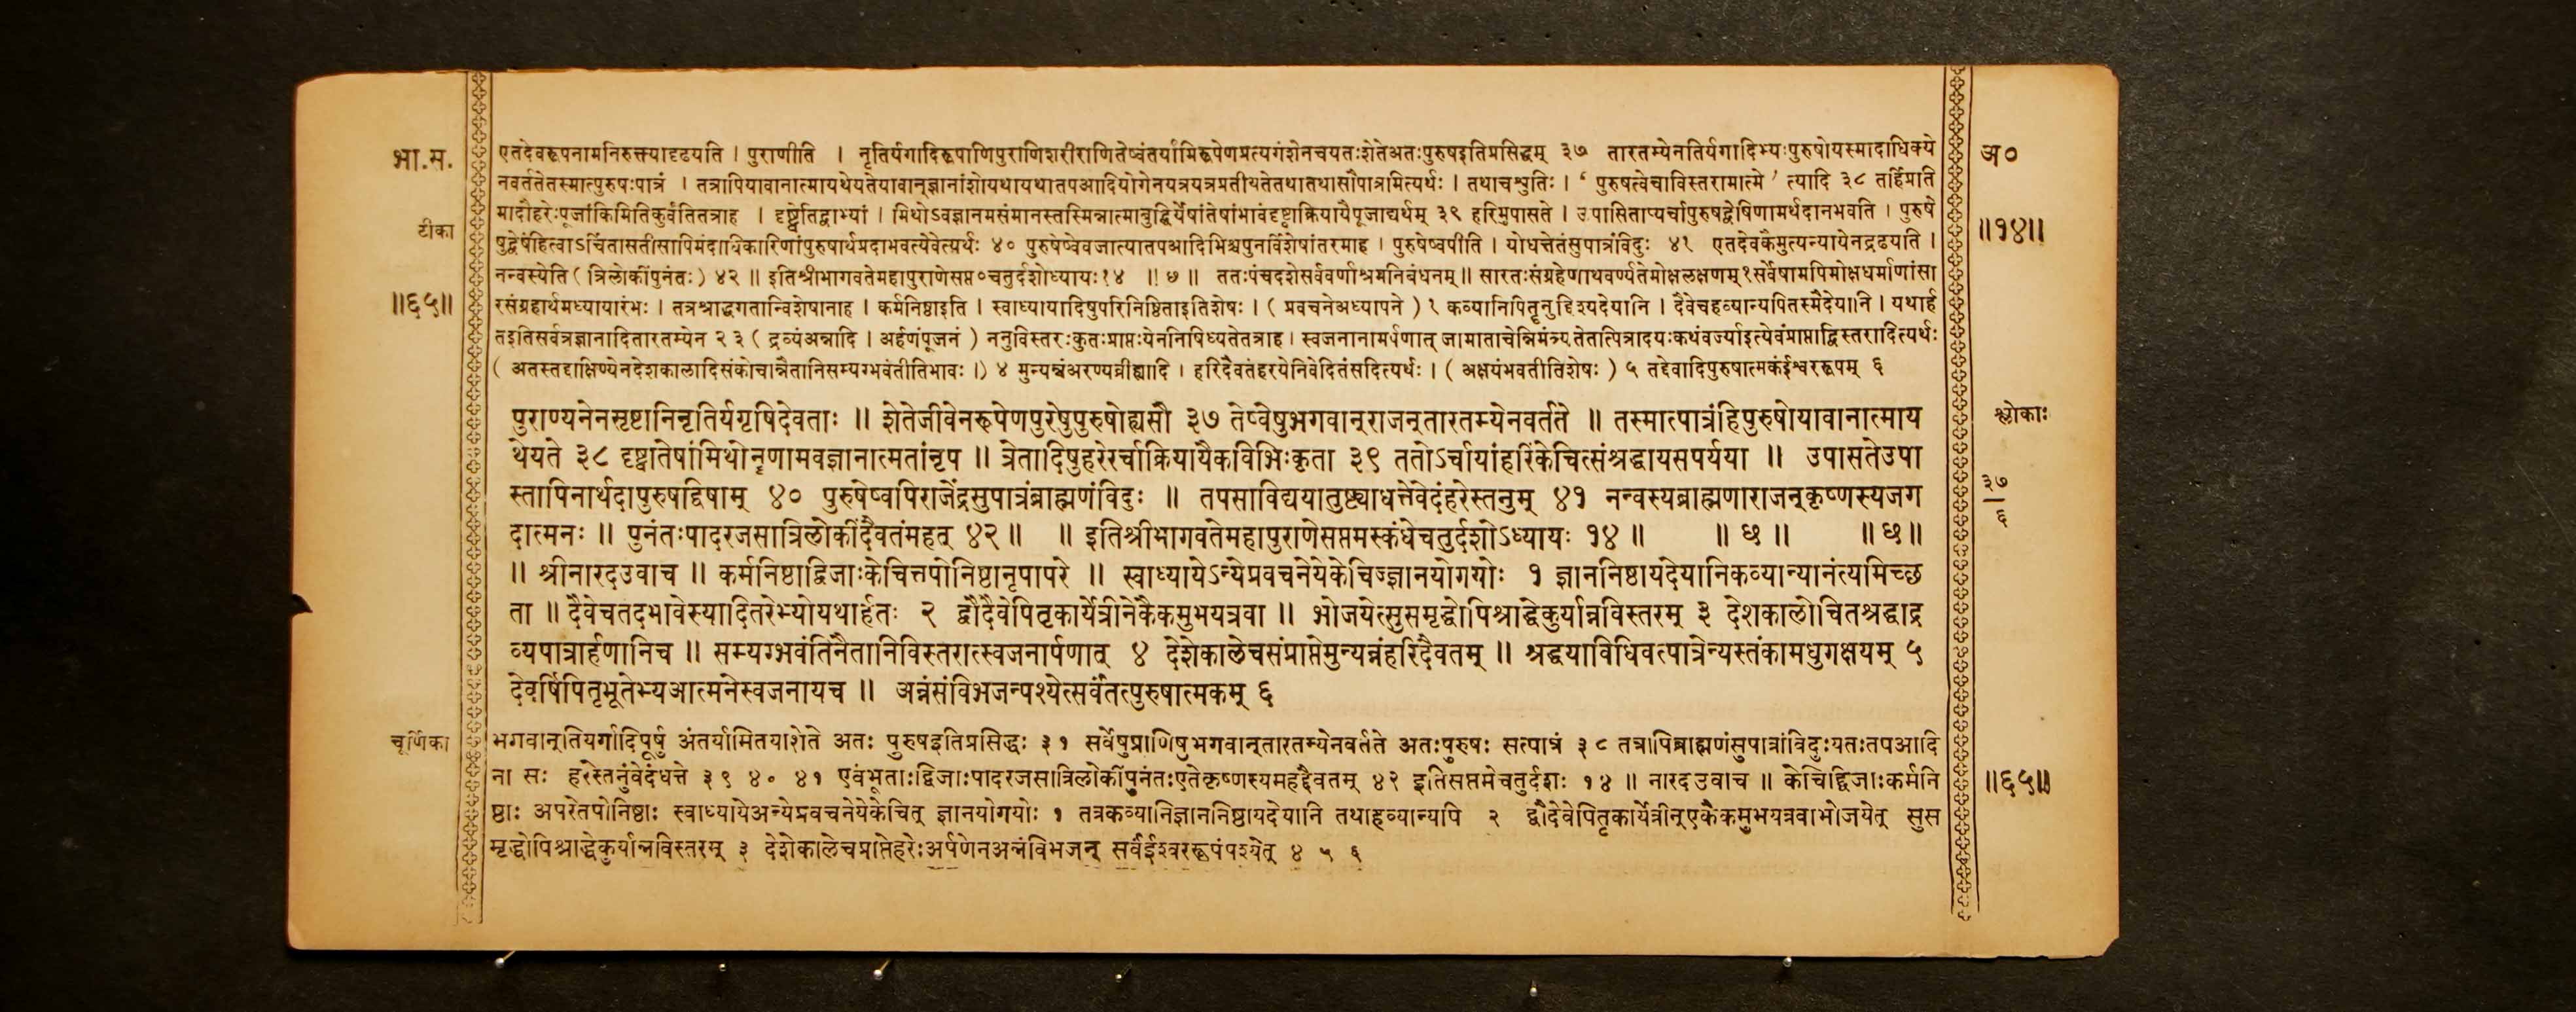 भा.स.
एतदेवरूपनामनिरुक्त्यादृढयति । पुराणीति । नृतिर्यगादिरूपाणिपुराणिशरीराणितेष्वंतर्यामिरूपेणप्रत्यगंशेनचयतःशेतेअतःपुरुषइतिप्रसिद्धम् ३७ तारतम्येनतिर्यगादिभ्यःपुरुषोयस्मादाधिक्ये
अ०
नवर्ततेतस्मात्पुरुषःपात्रं । तत्रापियावानात्मायथेयतेयावान्ज्ञानांशोयथायथातपआदियोगेनयत्रयत्रप्रतीयतेतथातथासौपात्रमित्यर्थः । तथाचश्रुतिः । ‘ पुरुषत्वेचाविस्तरामात्मे ’ त्यादि ३८ तर्हिप्रति
मादौहरेःपूजांकिमितिकुर्वंतितत्राह । दृष्ट्वेतिद्वाभ्यां । मिथोऽवज्ञानमसंमानस्तस्मिन्नात्माबुद्धिर्येषांतेषांभावंदृष्ट्वाक्रियायैपूजाद्यर्थम् ३९ हरिमुपासते । उपासिताप्यर्चापुरुषद्वेषिणामर्थदानभवति । पुरुषे
टीका
॥१४॥
षुद्वेषंहित्वाऽर्चितासतीसापिमंदाधिकारिणांपुरुषार्थप्रदाभवत्येवेत्यर्थः ४० पुरुषेष्वेवजात्यातपआदिभिश्चपुनर्विशेषांतरमाह । पुरुषेष्वपीति । योधत्तेतंसुपात्रंविदुः ४१ एतदेवकैमुत्यन्यायेनद्रढयति ।
नन्वस्येति ( त्रिलोकींपुनंतः ) ४२ ॥ इतिश्रीभागवतेमहापुराणेसप्त०चतुर्दशोध्यायः१४ ॥ ७ ॥ ततःपंचदशेसर्ववर्णाश्रमनिबंधनम् ॥ सारतःसंग्रहेणाथवर्ण्यतेमोक्षलक्षणम्१सर्वेषामपिमोक्षधर्माणांसा
॥६५॥
रसंग्रहार्थमध्यायारंभः । तत्रश्राद्धगतान्विशेषानाह । कर्मनिष्ठाइति । स्वाध्यायादिषुपरिनिष्ठिताइतिशेषः । ( प्रवचनेअध्यापने ) १ कव्यानिपितॄनुद्दिश्यदेयानि । दैवेचहव्यान्यपितस्मैदेयानि । यथार्ह
तइतिसर्वत्रज्ञानादितारतम्येन २ ३ ( द्रव्यंअन्नादि । अर्हणंपूजनं ) ननुविस्तरःकुतःप्राप्तःयेननिषिध्यतेतत्राह । स्वजनानामर्पणात् जामाताचेन्निमंत्र्यतेतत्पित्रादयःकथंवर्ज्याइत्येवंप्राप्ताद्विस्तरादित्यर्थः
( अतस्तद्दाक्षिण्येनदेशकालादिसंकोचान्नैतानिसम्यग्भवंतीतिभावः ।) ४ मुन्यन्नंअरण्यव्रीह्यादि । हरिदैवतंहरयेनिवेदितंसदित्यर्थः । ( अक्षयंभवतीतिशेषः ) ५ तद्देवादिपुरुषात्मकंईश्वररूपम् ६
पुराण्यनेनसृष्टानिनृतिर्यगृषिदेवताः ॥ शेतेजीवेनरूपेणपुरेषुपुरुषोह्यसौ ३७ तेष्वेषुभगवान्‌राजन्‌तारतम्येनवर्तते ॥ तस्मात्पात्रंहिपुरुषोयावानात्माय
श्लोकाः
थेयते ३८ दृष्ट्वातेषांमिथोनृणामवज्ञानात्मतांनृप ॥ त्रेतादिषुहरेरर्चाक्रियायैकविभिःकृता ३९ ततोऽर्चायांहरिंकेचित्संश्रद्धायसपर्यया ॥ उपासतेउपा
स्तापिनार्थदापुरुषद्विषाम् ४० पुरुषेष्वपिराजेंद्रसुपात्रंब्राह्मणंविदुः ॥ तपसाविद्ययातुष्ट्याधत्तेवेदंहरेस्तनुम् ४१ नन्वस्यब्राह्मणाराजन्‌कृष्णस्यजग
३७
६
दात्मनः ॥ पुनंतःपादरजसात्रिलोकींदैवतंमहत् ४२ ॥ ॥ इतिश्रीभागवतेमहापुराणेसप्तमस्कंधेचतुर्दशोऽध्यायः १४ ॥ ॥ छ ॥ ॥ छ ॥
॥ श्रीनारदउवाच ॥ कर्मनिष्ठाद्विजाःकेचित्तपोनिष्ठानृपापरे ॥ स्वाध्यायेऽन्येप्रवचनेयेकेचिज्ज्ञानयोगयोः १ ज्ञाननिष्ठायदेयानिकव्यान्यानंत्यमिच्छ
ता ॥ दैवेचतदभावेस्यादितरेभ्योयथार्हतः २ द्वौदैवेपितृकार्येत्रीनेकैकमुभयत्रवा ॥ भोजयेत्सुसमृद्धोपिश्राद्धेकुर्यान्नविस्तरम् ३ देशकालोचितश्रद्धाद्र
व्यपात्रार्हणानिच ॥ सम्यग्भवंतिनैतानिविस्तरात्स्वजनार्पणात् ४ देशेकालेचसंप्राप्तेमुन्यन्नंहरिदैवतम् ॥ श्रद्धयाविधिवत्पात्रेन्यस्तंकामधुगक्षयम् ५
देवर्षिपितृभूतेभ्यआत्मनेस्वजनायच ॥ अन्नंसंविभजन्पश्येत्सर्वंतत्पुरुषात्मकम् ६
चूर्णिका
भगवान्‌तिर्यगादिपूर्षु अंतर्यामितयाशेते अतः पुरुषइतिप्रसिद्धः ३१ सर्वेषुप्राणिषुभगवान्‌तारतम्येनवर्तते अतःपुरुषः सत्पात्रं ३८ तत्रापिब्राह्मणंसुपात्रंविदुःयतःतपआदि
ना सः हरेस्तनुंवेदंधत्ते ३९ ४० ४१ एवंभूताःद्विजाःपादरजसात्रिलोकींपुनंतःएतेकृष्णस्यमहद्दैवतम् ४२ इतिसप्तमेचतुर्दशः १४ ॥ नारदउवाच ॥ केचिद्द्विजाःकर्मनि
॥६५॥
ष्ठाः अपरेतपोनिष्ठाः स्वाध्यायेअन्येप्रवचनेयेकेचित् ज्ञानयोगयोः १ तत्रकव्यानिज्ञाननिष्ठायदेयानि तथाहव्यान्यपि २ द्वौदेवेपितृकार्येत्रीन्‌एकैकमुभयत्रवाभोजयेत् सुस
मृद्धोपिश्राद्धेकुर्यान्नविस्तरम् ३ देशेकालेचप्राप्तेहरेःअर्पणेनअन्नंविभजन् सर्वंईश्वररूपंपश्येत् ४ ५ ६